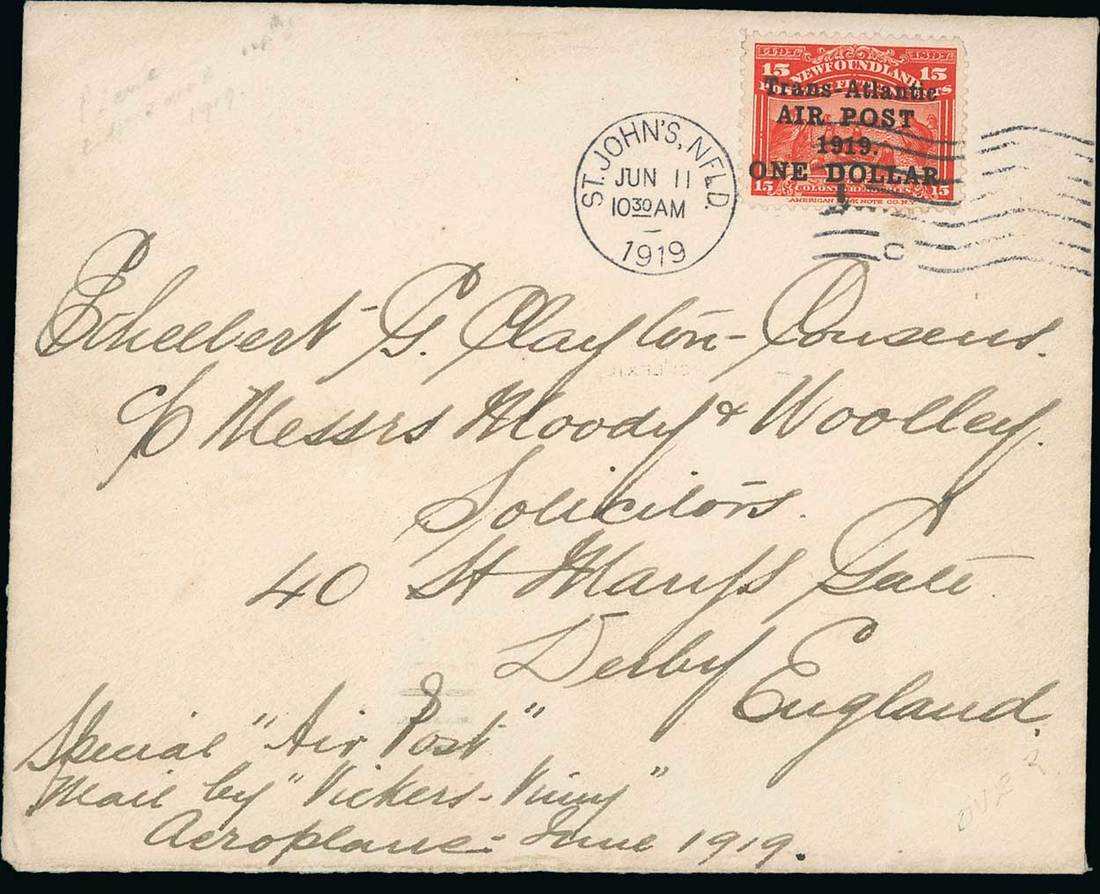 1919.
1497 1897
15 NEWFOUNDLAND 15
Trans-Atlantic
AIR POST
1919.
ONE DOLLAR.
15 15
AMERICAN BANK NOTE CO. N.Y.
ST. JOHN'S, NFLD.
JUN 11
10 30 AM
1919
C
Ethelbert G. Clayton-Cousens.
c/o Messrs Moody & Woolley.
Solicitors.
40 St Mary's Gate
Derby
England.
Special "Air Post"
Mail by "Vickers-Vimy"
Aeroplane: June 1919.